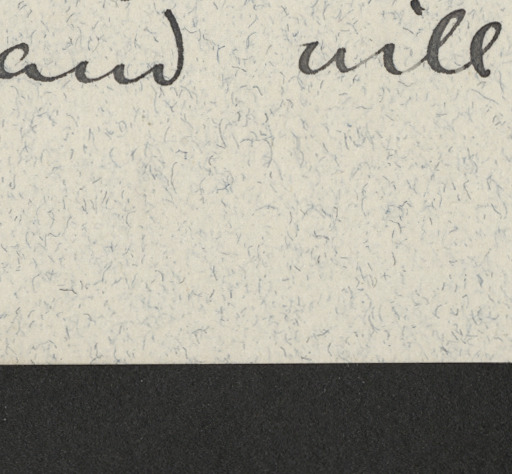 and will